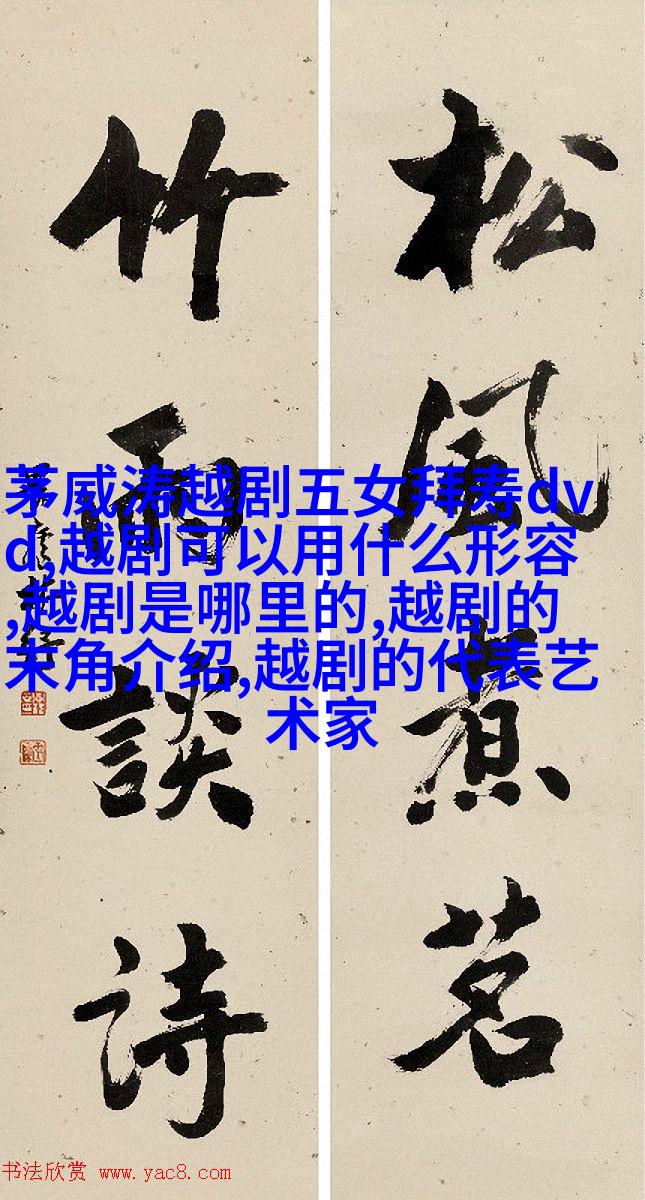 松風煮茗
竹雨談詩
茅威涛越剧五女拜寿dv
d,越剧可以用什么形容
,越剧是哪里的,越剧的
末角介绍,越剧的代表艺
术家
书法欣赏 www.yac8.com